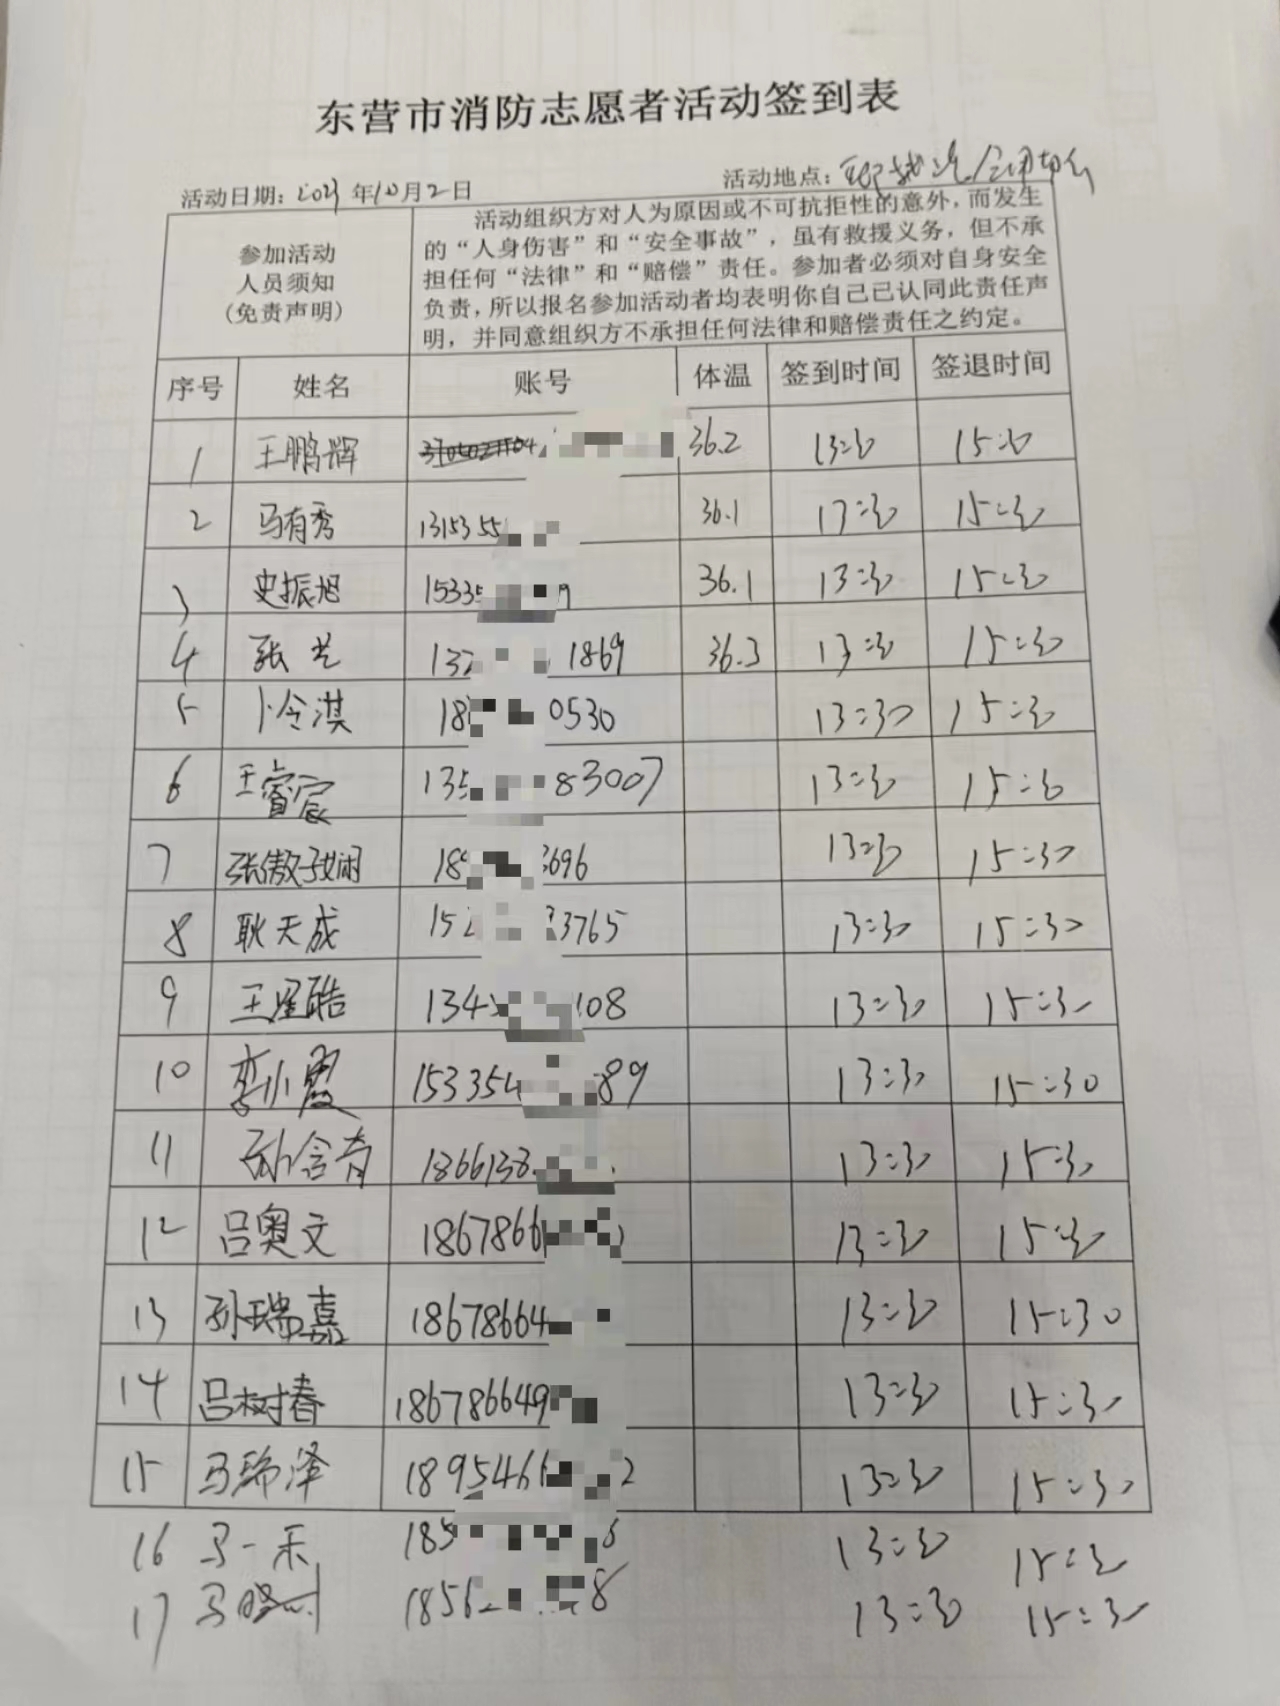 东营市消防志愿者活动签到表
活动日期: 年10月2日 活动地点:
参加活动
人员须知
(免责声明)
活动组织方对人为原因或不可抗拒性的意外，而发生
的“人身伤害”和“安全事故”，虽有救援义务，但不承
担任何“法律”和“赔偿”责任。参加者必须对自身安全
负责，所以报名参加活动者均表明你自己已认同此责任声
明，并同意组织方不承担任何法律和赔偿责任之约定。
序号 姓名 账号 体温 签到时间 签退时间
1 王鹏辉 36.2 13:30 15:30
2 马有秀 1315355 36.1 13:30 15:30
3 史振旭 1533 36.1 13:30 15:30
4 张 132 1869 36.3 13:30 15:30
5 卜令淇 18 0530 13:30 15:30
6 王睿宸 135 83007 13:30 15:30
7 张傲 18 3696 13:30 15:30
8 耿天成 152 3765 13:30 15:30
9 王星皓 134 108 13:30 15:30
10 李小霞 153354 89 13:30 15:30
11 孙含青 1866138 13:30 15:30
12 吕奥文 1867866 13:30 15:30
13 孙瑞嘉 18678664 13:30 15:30
14 吕树春 186786649 13:30 15:30
15 马瑞泽 1895466 2 13:30 15:30
16 马一禾 185 13:30 15:30
17 马 1856 8 13:30 15:30